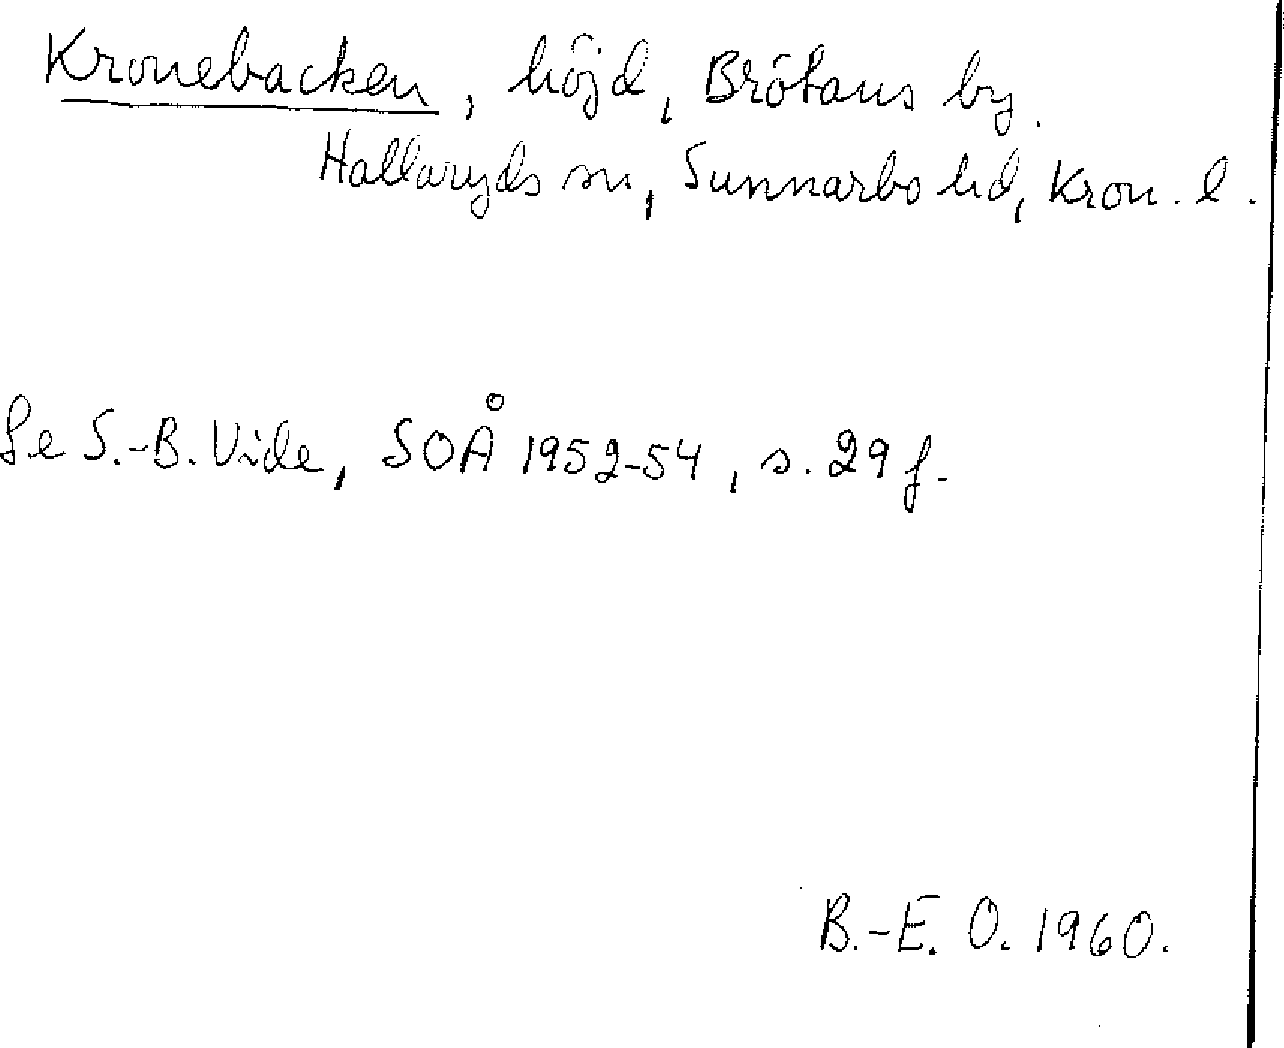 Kronebacken, höjd, Brötans by.
Hallaryds sn, Sunnarbo hd, Kron. l.
Se S.-B. Vide, SOÅ 1952-54, s. 29 f.
B.-E. O. 1960.